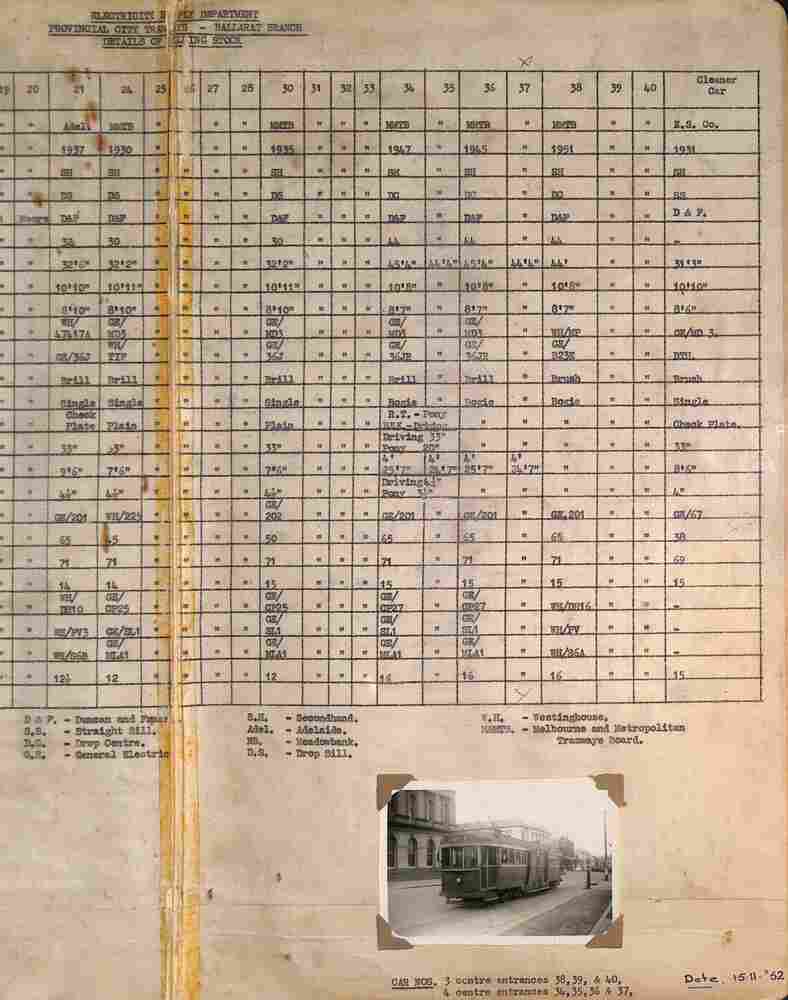 ELECTRICITY SUPPLY DEPARTMENT
PROVINCIAL CITY TRAMWAYS - BALLARAT BRANCH
DETAILS OF ROLLING STOCK
19 20 21 24 25 26 27 28 30 31 32 33 34 35 36 37 38 39 40 Cleaner Car
" " Adel. MMTB " " " " MMTB " " " MMTB " MMTB " MMTB " " E.S. Co.
" " 1937 1930 " " " " 1935 " " " 1947 " 1945 " 1951 " " 1931
" " SH SH " " " " SH " " " SH " SH " SH " " SH
" " DS DS " " " " DS " " " DC " DC " DC " " SS
" DAF DAF " " " " DAF " " " DAF " DAF " DAF " " D & F.
" " 34 30 " " " " 30 " " " 44 " 44 " 44 " " -
" " 32'6" 32'2" " " " " 32'2" " " " 45'4" 44'4" 45'4" 44'4" 44' " " 31'3"
" " 10'10" 10'11" " " " " 10'11" " " " 10'8" " 10'8" " 10'8" " " 10'10"
" " 8'10" 8'10" " " " " 8'10" " " " 8'7" " 8'7" " 8'7" " " 8'6"
WH/ GE/ GE/ GE/ GE/
" " 47417A MD3 " " " " MD3 " " " MD3 " MD3 " WH/MP " " GE/MD 3.
WH/ GE/ GE/ GE/ GE/
" " GE/36J TIF " " " " 36J " " " 36JR " 36JR " B23E " " DTL
" " Brill Brill " " " " Brill " " " Brill " Brill " Brush " " Brush
" " Single Single " " " " Single " " " Bogie " Bogie " Bogie " " Single
Check R.T. - Pony
" " Plate Plain " " " " Plain " " " - Driving " " " " " " Check Plate.
Driving 33"
" " 33" " " " " 33" " " " Pony 20" " " " " " " 33"
4' 4' 4' 4'
" " 9'6" 7'6" " " " " 7'6" " " " 25'7" 24'7" 25'7" 24'7" " " " 8'6"
Driving 4½"
" " 4½" 4½" " " " " 4½" " " " Pony 3½" " " " " " " 4"
GE/
" " GE/201 WH/225 " " " " 202 " " " GE/201 " GE/201 " GE.201 " " GE/67
" " 65 45 " " " " 50 " " " 65 " 65 " 65 " " 38
" " 71 71 " " " " 71 " " " 71 " 71 " 71 " " 69
" " 14 14 " " " " 15 " " " 15 " 15 " 15 " " 15
WH/ GE/ GE/ GE/ GE/
" " DH10 CP25 " " " " CP25 " " " CP27 " CP27 " WH/DH16 " " -
GE/ GE/ GE/
" " WH/PV3 GE/SL1 " " " " SL1 " " " SL1 " SL1 " WH/PV " " -
GE/ GE/ GE/ GE/
" " WH/86B MLA1 " " " " MLA1 " " " MLA1 " MLA1 " WH/86A " " -
" " 12½ 12 " " " " 12 " " " 16 " 16 " 16 " " 15
D & F. - Duncan and
S.S. - Straight Sill.
D.C. - Drop Centre.
G.E. - General Electric
S.H. - Secondhand.
Adel. - Adelaide.
MB. - Meadowbank.
D.S. - Drop Sill.
W.H. - Westinghouse.
MMTB. - Melbourne and Metropolitan
Tramways Board.
CAR NOS. 3 centre entrances 38,39, & 40,
4 centre entrances 34,35,36 & 37,
Date 15·11·'52